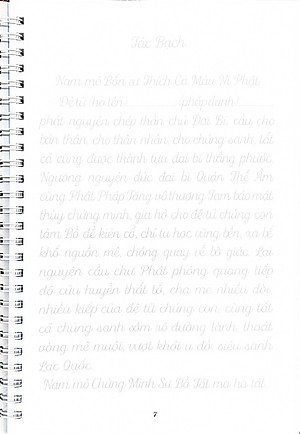 Tác Bạch
Nam mô Bổn sư Thích Ca Mâu Ni Phật
Đệ tử họ tên pháp danh
phát nguyện chép thần chú Đại Bi, cầu cho
bản thân, cho thân nhân, cho chúng sanh, tất
cả cùng được thành tựu đại bi thắng phước.
Ngưỡng nguyện đức đại bi Quán Thế Âm
cùng Phật Pháp Tăng vô thượng Tam bảo mật
thùy chứng minh, gia hộ cho đệ tử chúng con
tâm Bồ đề kiên cố, chí tu học vững bền, xa bể
khổ nguồn mê, chóng quay về bờ giác. Lại
nguyện cầu chư Phật phóng quang tiếp
độ cửu huyền thất tổ, cha mẹ nhiều đời,
nhiều kiếp của đệ tử chúng con, cùng tất
cả chúng sanh sớm rõ đường lành, thoát
vòng mê muội, vượt khỏi u đồ, siêu sanh
Lạc Quốc.
Nam mô Chứng Minh Sư Bồ Tát ma ha tát.
7